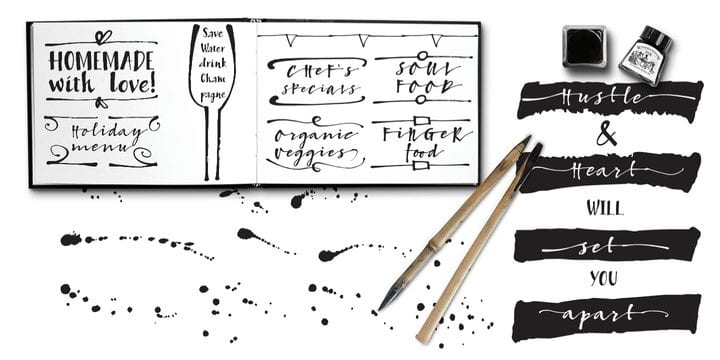 HOMEMADE
with love!
Holiday
menu
Save
Water
drink
Cham
pagne
CHEF'S
SPECIALS
SOUL
FOOD
organic
veggies
FINGER
food
Hustle
&
Heart
WILL
set
YOU
apart